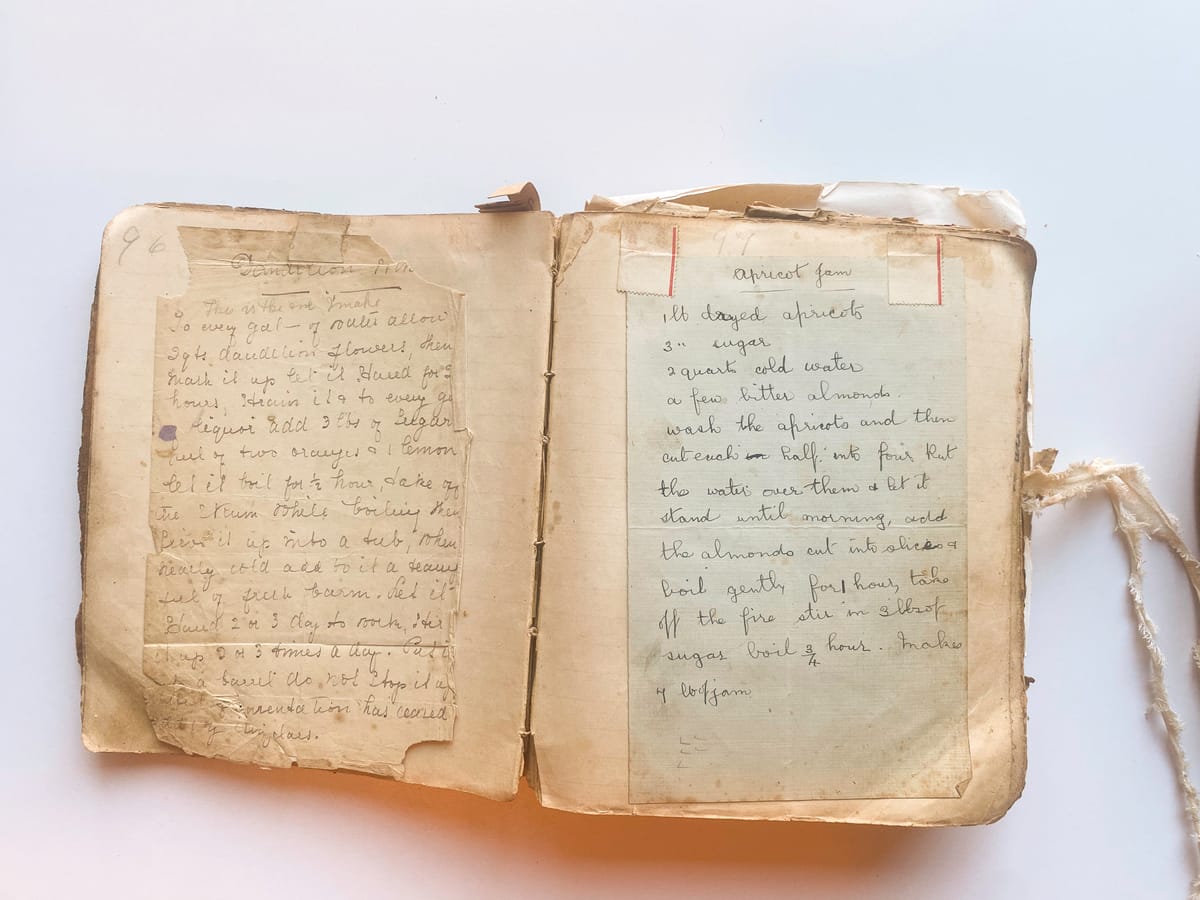 96
Dandelion
This is the one I make
To every gal - of water allow
3 qts dandelion flowers, then
mash it up let it Stand for
hours, Strain it & to every
liquor add 3 lbs of Sugar
peel of two oranges & 1 lemon
let it boil for ½ hour, take off
the Skum While boiling then
it up into a tub, when
nearly cold add to it a
ful of fresh barm. Let it
Stand 2 or 3 day to work, Stir
it up 2 or 3 times a day. Put
a barrel do not Stop it
fermentation has ceased
97
Apricot Jam
1 lb drayed apricots
3 " sugar
2 quarts cold water
a few bitter almonds.
wash the apricots and then
cut each half into four Put
the water over them & let it
stand until morning, add
the almonds cut into slices &
boil gently for 1 hour, take
off the fire stir in 3 lbs of
sugar boil ¾ hour. Makes
lb of jam